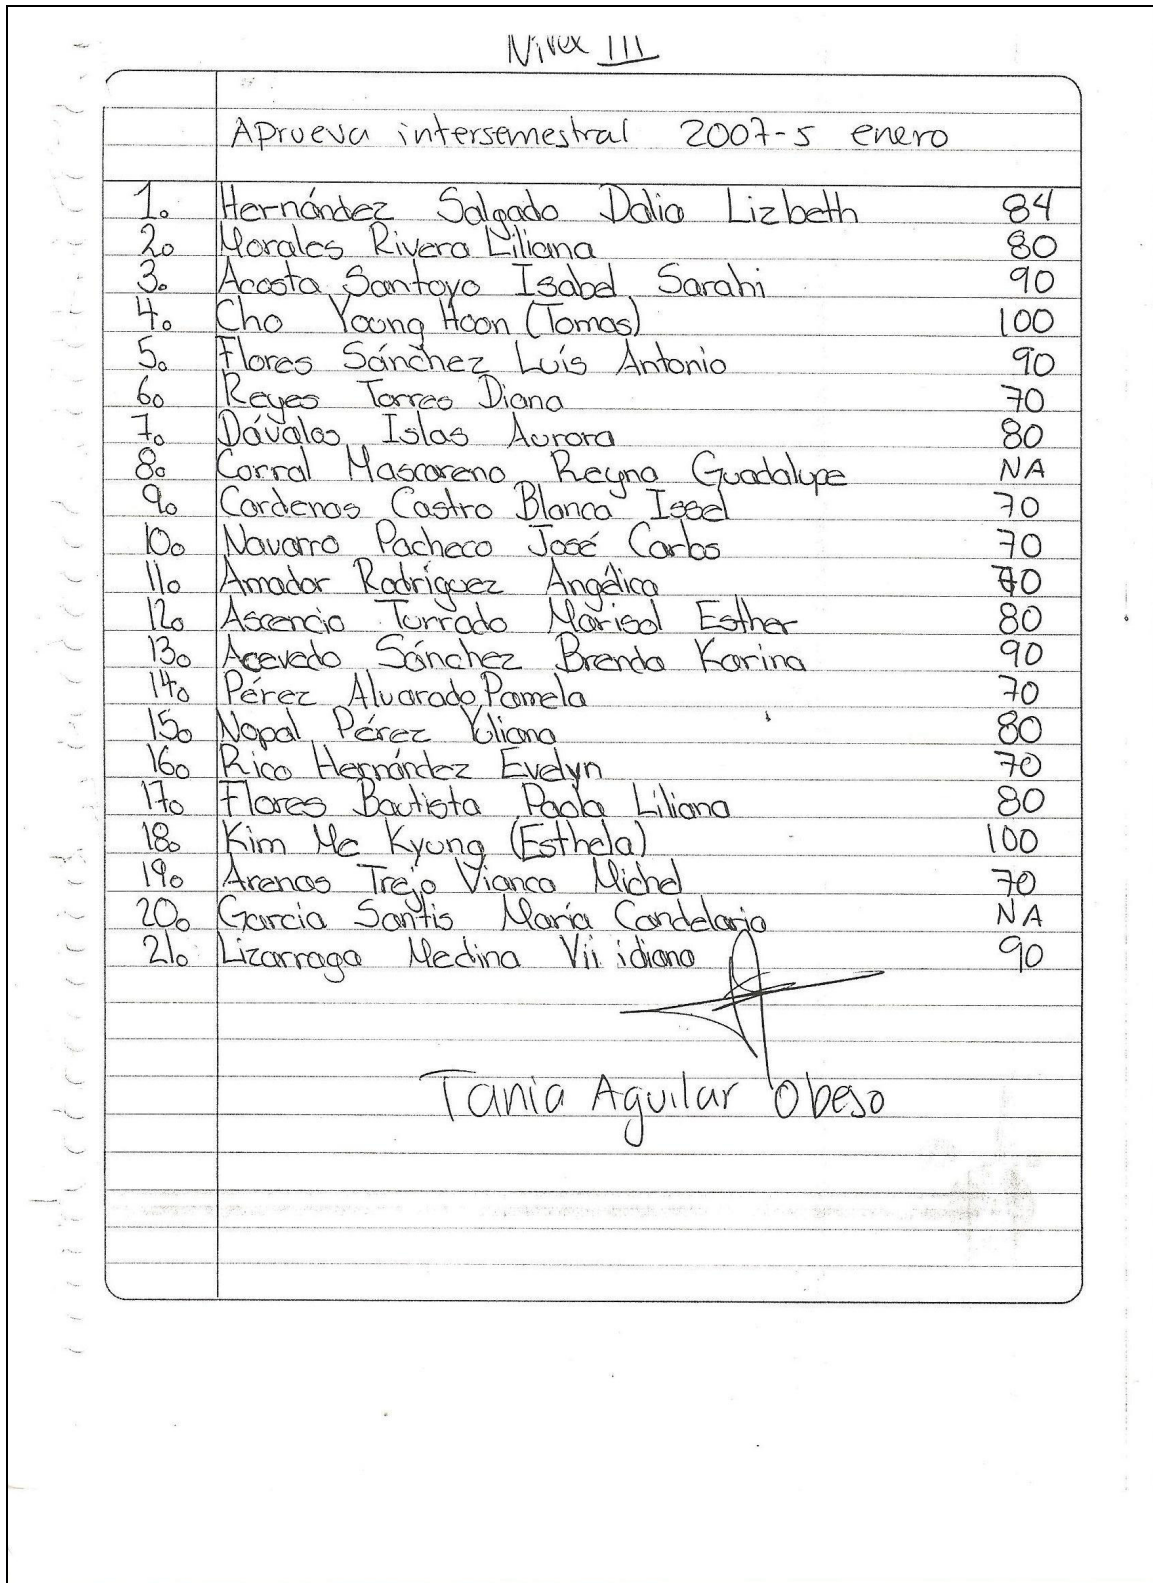 Nivel III
Aprueva intersemestral 2007-5 enero
1. Hernández Salgado Dalia Lizbeth 84
2. Morales Rivera Liliana 80
3. Acosta Santoyo Isabel Sarahi 90
4. Cho Yoong Hoon (Tomas) 100
5. Flores Sánchez Luís Antonio 90
6. Reyes Torres Diana 70
7. Dávalos Islas Aurora 80
8. Corral Mascareno Reyna Guadalupe NA
9. Cardenas Castro Blanca Isael 70
10. Navarro Pacheco José Carlos 70
11. Amador Rodríguez Angélica 70
12. Ascencio Turrado Marisol Esther 80
13. Acevedo Sánchez Brenda Karina 90
14. Pérez Alvarado Pamela 70
15. Nopal Pérez Yuliana 80
16. Rico Hernández Evelyn 70
17. Flores Bautista Paola Liliana 80
18. Kim Me Kyung (Esthela) 100
19. Arenas Trejo Vianca Michel 70
20. García Santis María Candelaria NA
21. Lizarraga Medina 90
Tania Aguilar Obeso